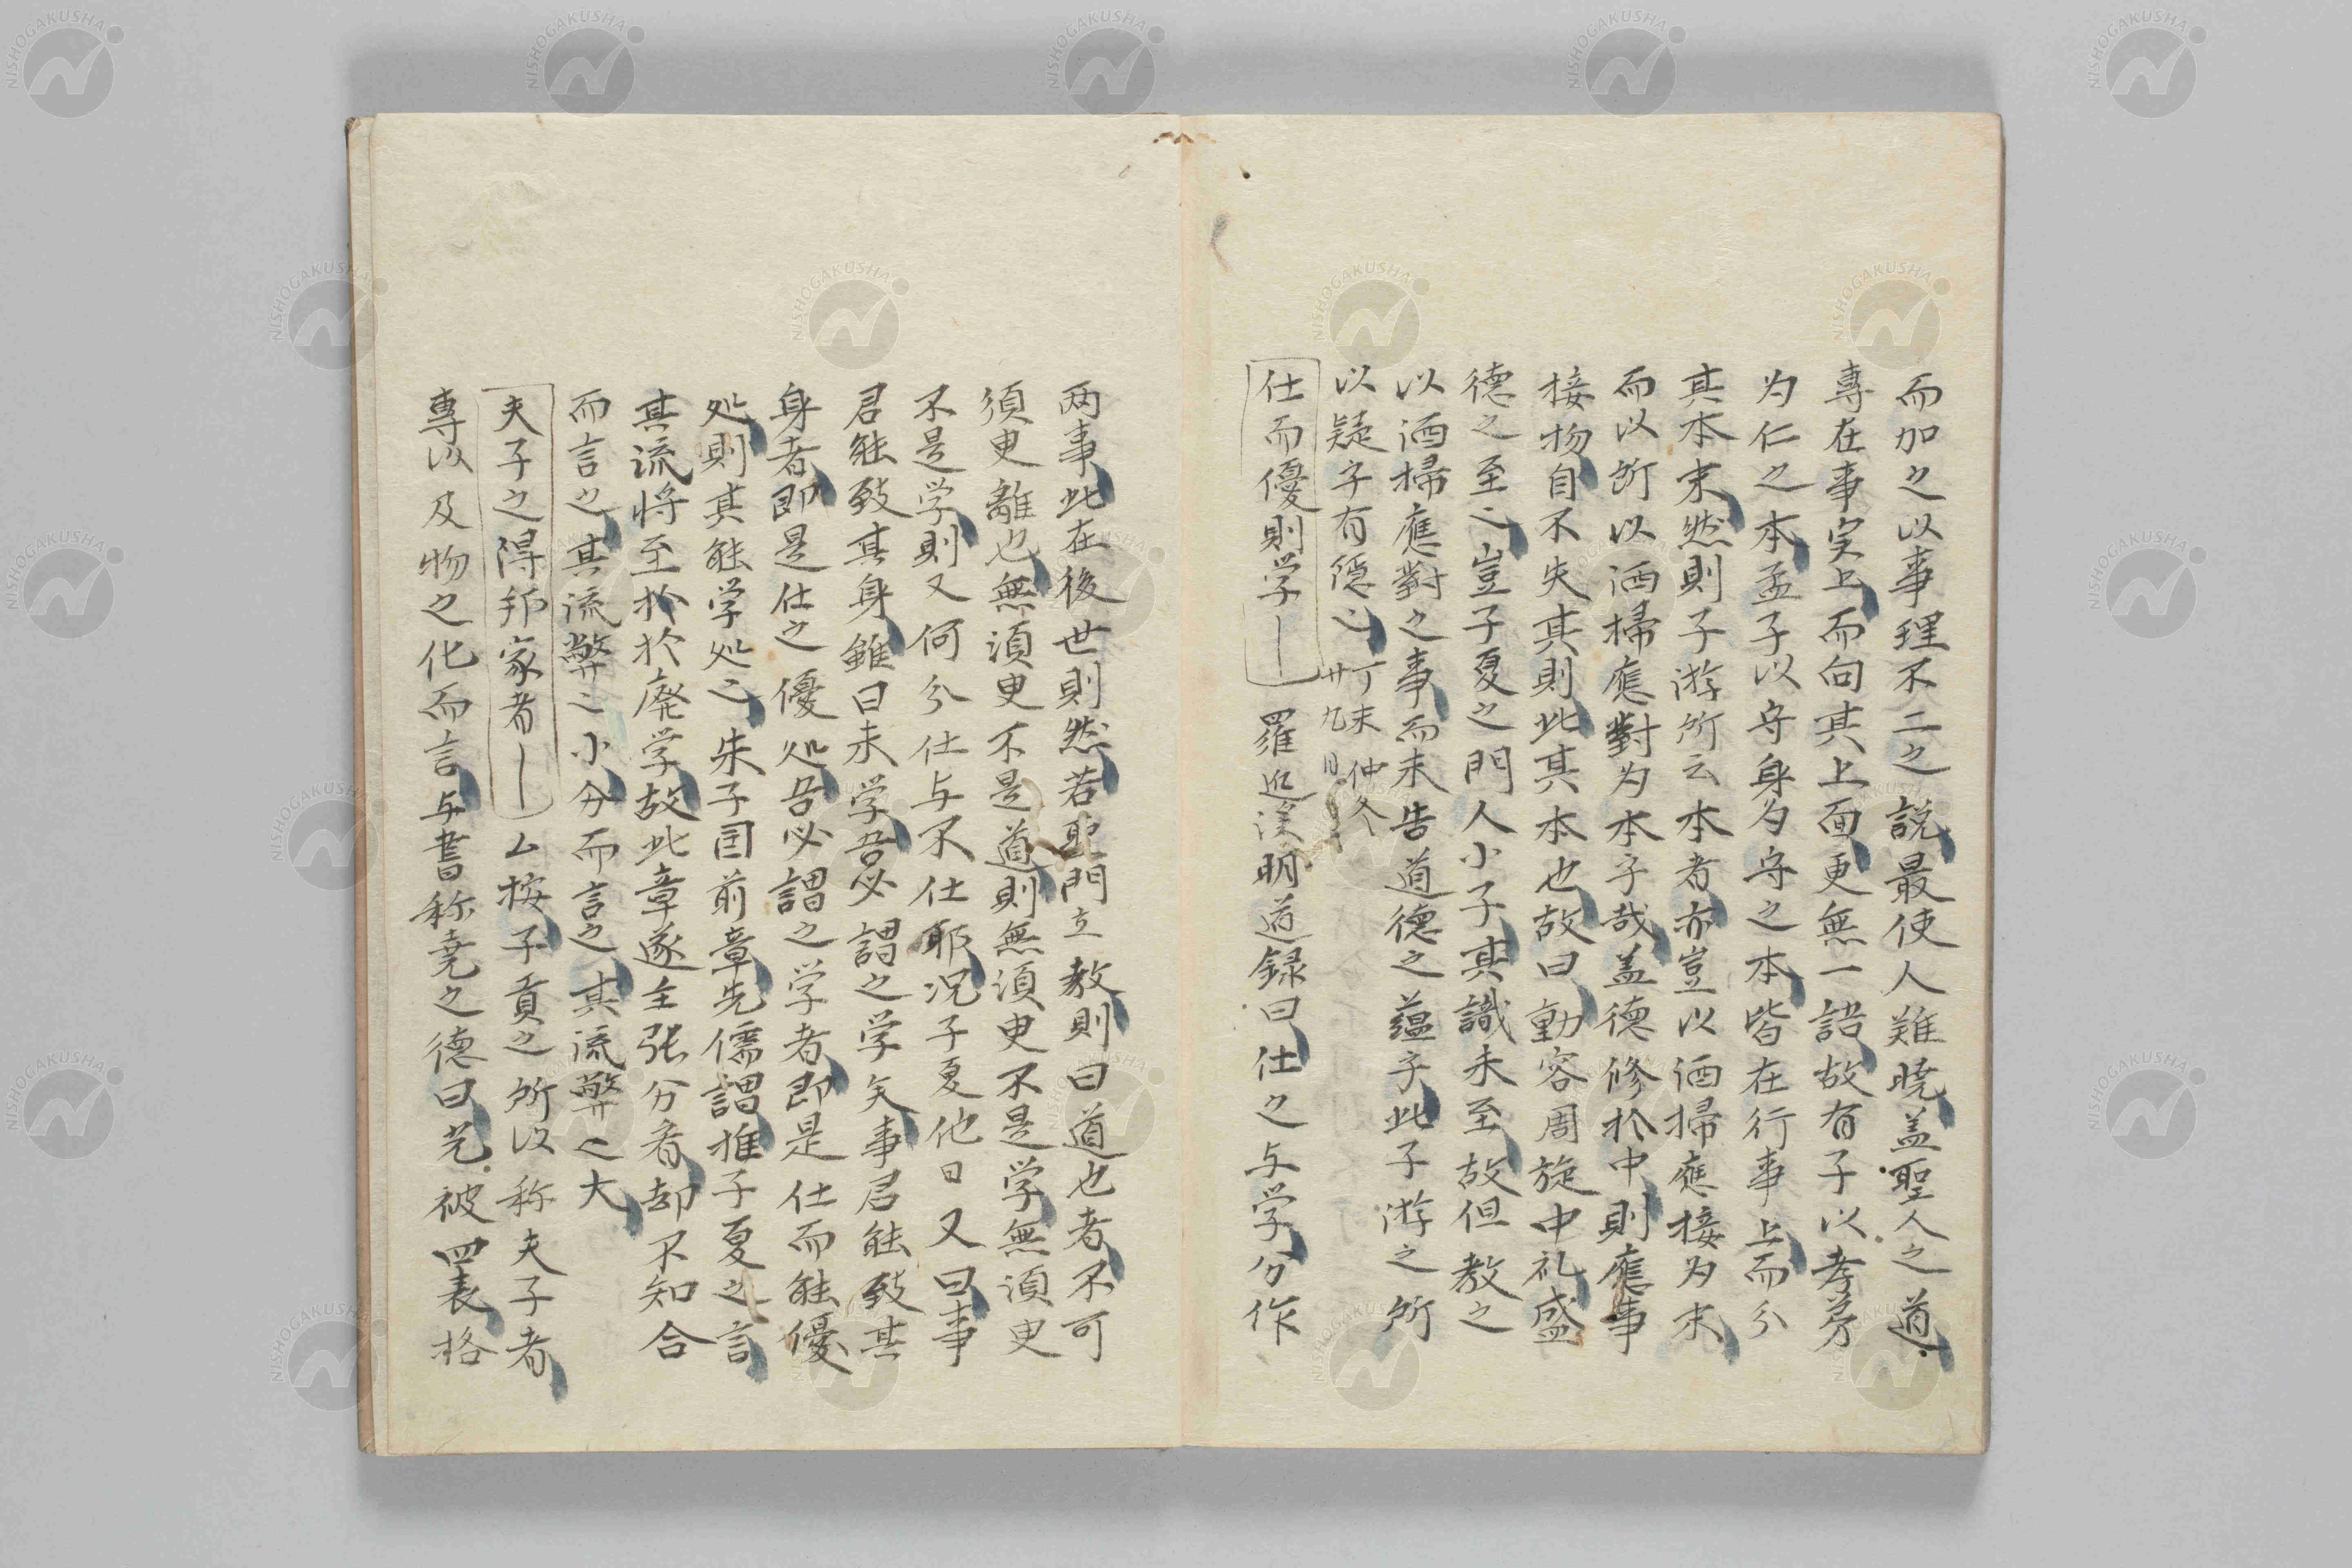 而加之以事理不二之説最使人難暁盖聖人之道
専在事実上而向其上面更無一語故有子以孝弟
为仁之本孟子以守身为守之本皆在行事上而分
其本末然則子游所云本者亦豈以洒掃應接为末
而以所以洒掃應對为本乎哉盖徳修於中則應事
接物自不失其則此其本也故曰動容周旋中礼盛
徳之至也豈子夏之門人小子其識未至故但教之
以洒掃應對之事而未告道徳之蘊乎此子游之所
以疑乎有隠也
丁未仲冬
廿九日
仕而優則学｜ 羅近溪明道録曰仕之与学分作
两事此在後世則然若聖門立教則曰道也者不可
須臾離也無須臾不是道則無須臾不是学無須臾
不是学則又何分仕与不仕耶况子夏他日又曰事
君能致其身雖曰未学吾必謂之学矣事君能致其
身者即是仕之優処吾必謂之学者即是仕而能優
処則其能学処也朱子因前章先儒謂推子夏之言
其流将至於於廃学故此章遂主张分看却不知合
而言之其流弊之小分而言之其流弊之大
夫子之得邦家者｜ 厶按子貢之所以称夫子者
専以及物之化而言与書称尭之徳曰光被四表格